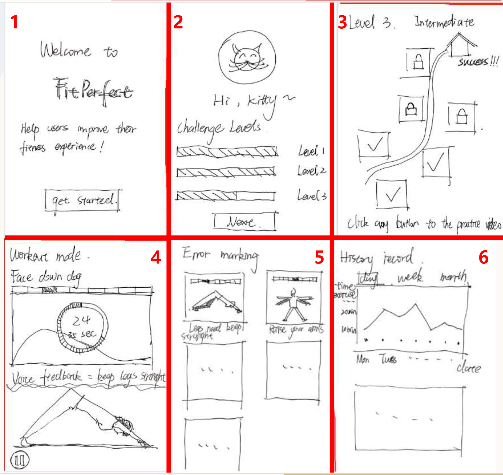 1
Welcome to
FitPerfect
Help users improve their
fitness experience!
get started.
2
Hi, kitty ~
Challenge Levels.
Level 1
Level 2
Level 3
3
Level 3. Intermediate
success!!!
Click any button to the practice video
4
Workout mode.
Face down dog
24
sec
Voice feedback = keep legs straight
5
Error marking
Legs need keep
straight
Raise your arms
6
History record.
day week month
time
exercise
Mon Tues
date